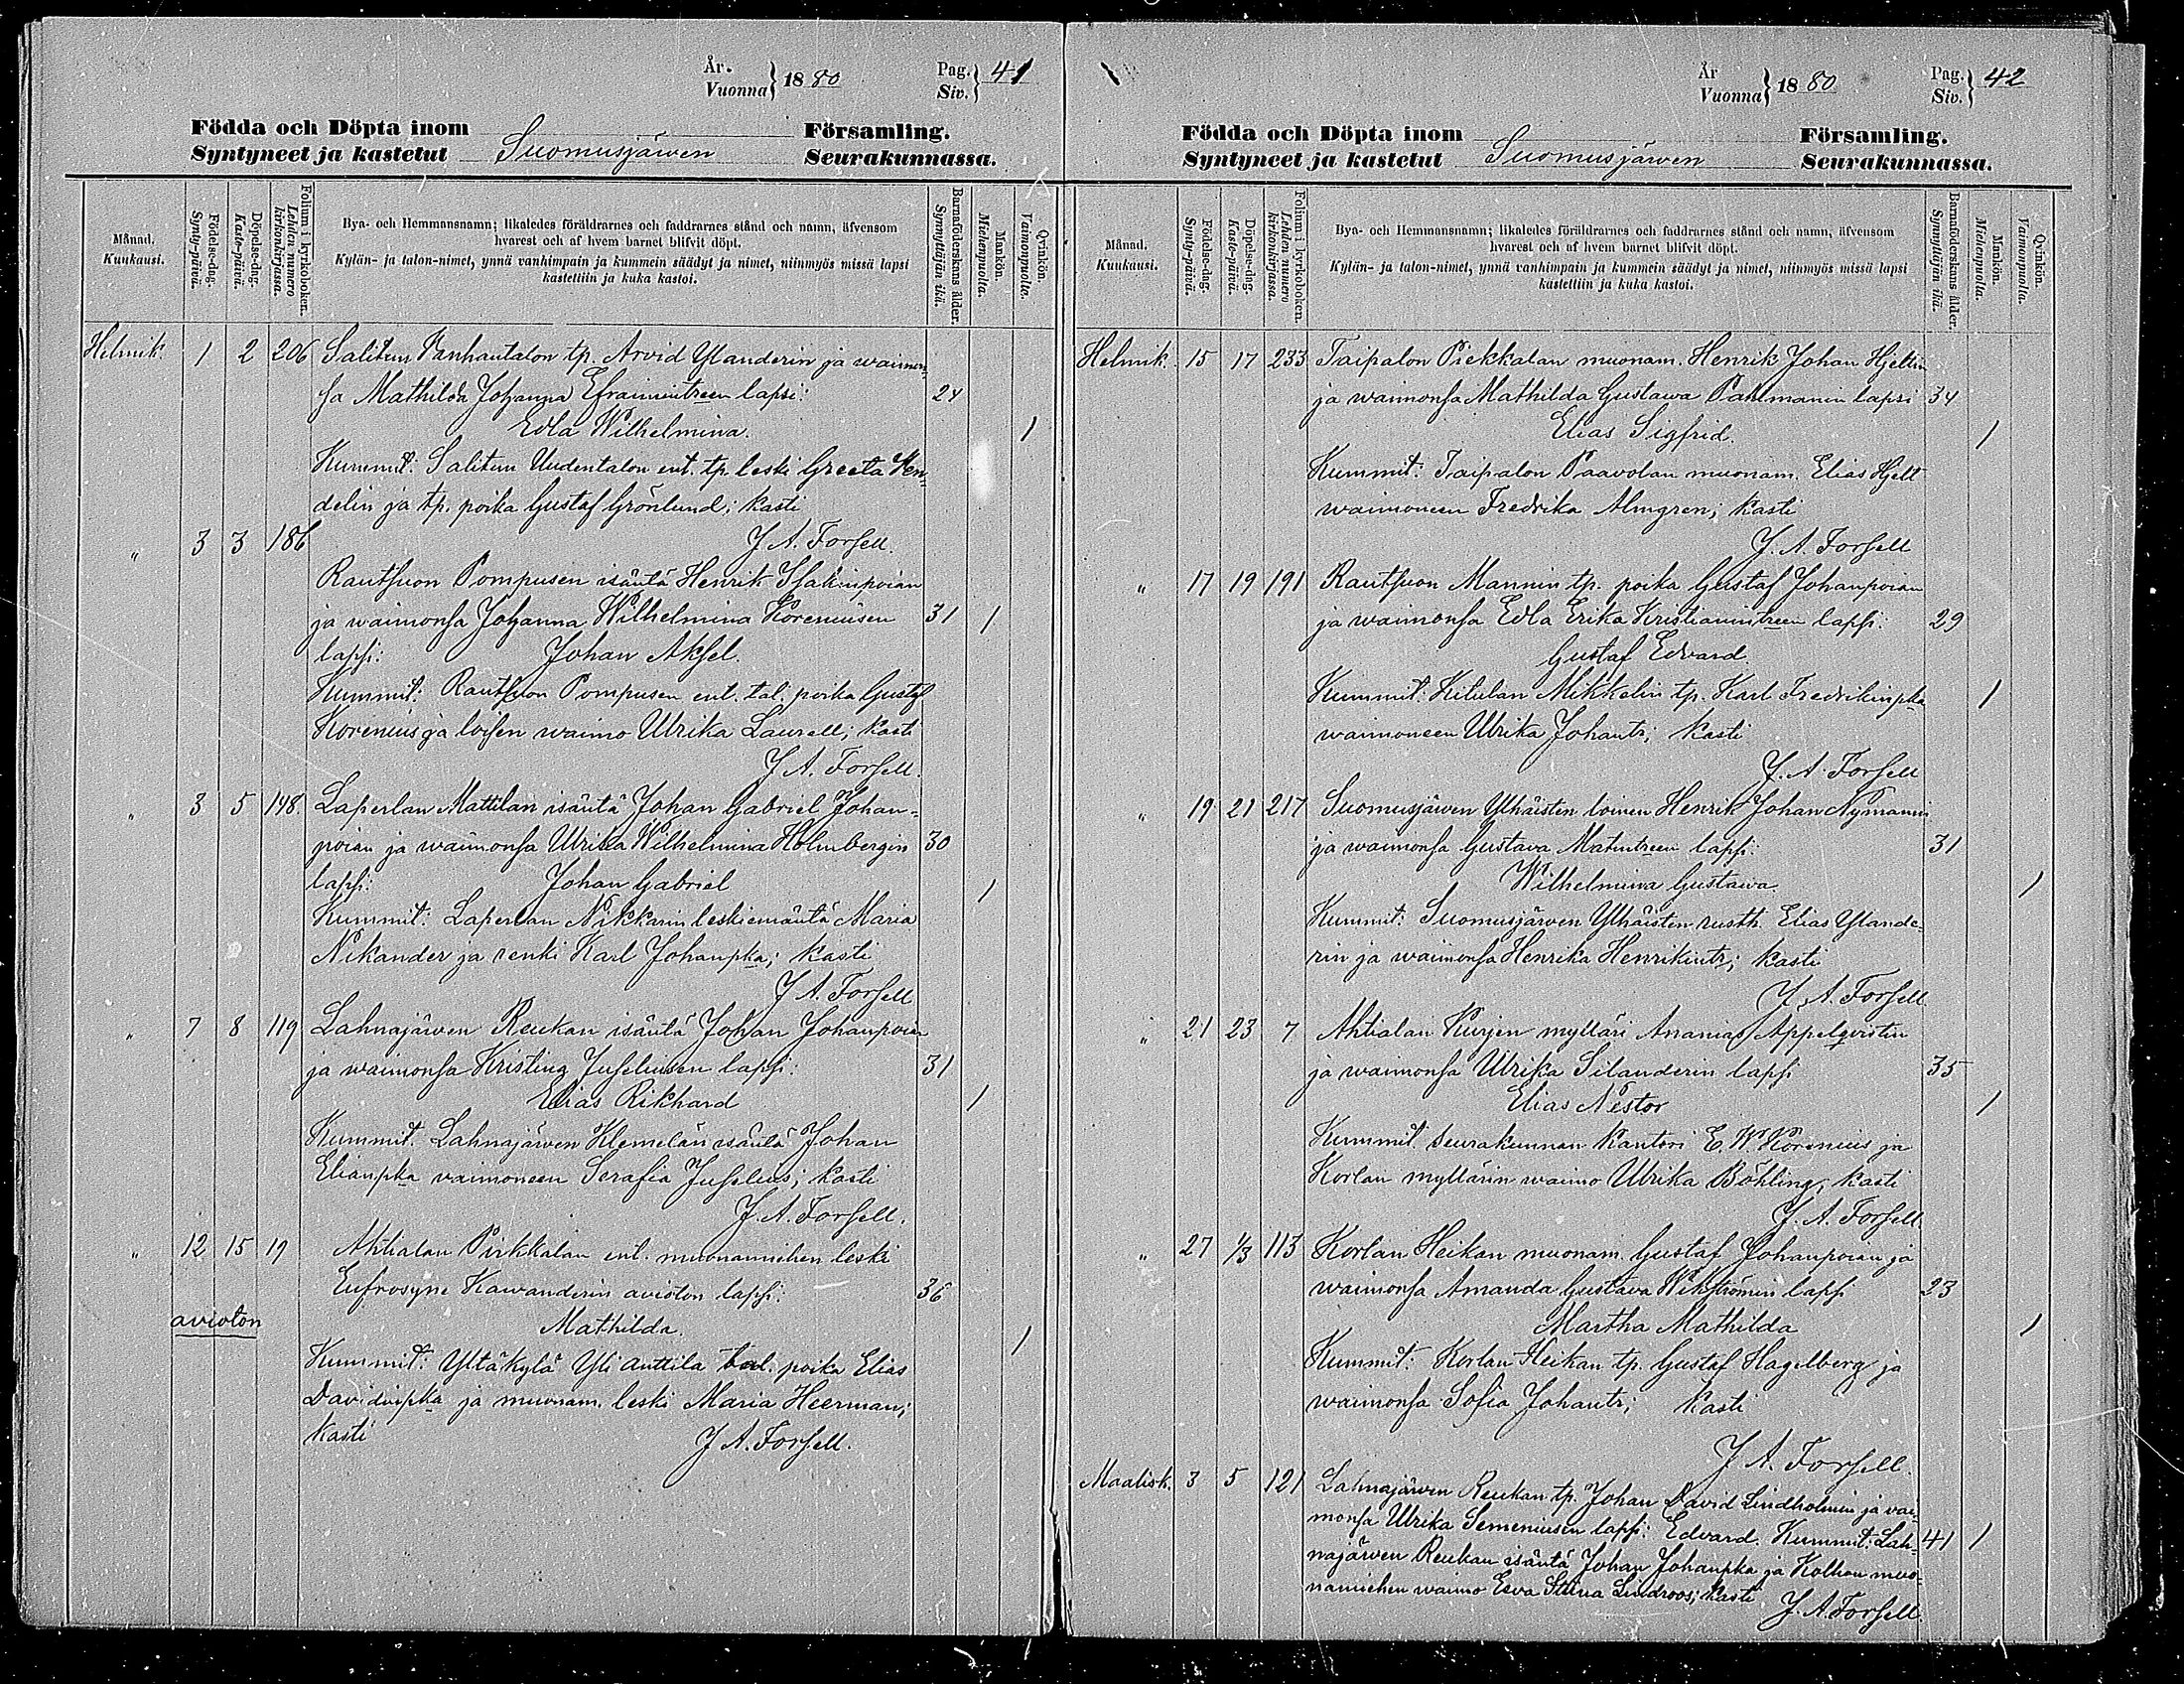 År.
Vuonna } 1880
Pag.
Siv. } 41
Födda och Döpta inom Församling.
Syntyneet ja kastetut Suomusjärven Seurakunnassa.
Månad.
Kuukausi.
Födelse-dag.
Synty-päivä.
Döpelse-dag.
Kaste-päivä.
Folium i kyrkoboken.
Lehden numero
kirkonkirjassa.
Bya- och Hemmansnamn; likaledes föräldrarnes och faddrarnes stånd och namn, äfvensom
hvarest och af hvem barnet blifvit döpt.
Kylän- ja talon-nimet, ynnä vanhimpain ja kummein säädyt ja nimet, niinmyös missä lapsi
kastettiin ja kuka kastoi.
Barnaföderskans ålder.
Synnyttäjän ikä.
Mankön.
Miehenpuolta.
Qvinkön.
Vaimonpuolta.
Helmik. 1 2 206 Salitun Vanhantalon tp. Arvid Ylanderin ja waimon-
sa Mathilda Johanna Efraimintreen lapsi: 24
Edla Wilhelmina. 1
Kummit: Salitun Uudentalon ent. tp. leski Greeta Hen-
delin ja tp. poika Gustaf Grönlund; kasti
J. A. Forsell.
" 3 3 186
Rautsuon Pompusen isäntä Henrik Isakinpoian
ja waimonsa Johanna Wilhelmina Koreniusen 31 1
lapsi: Johan Aksel.
Kummit: Rautsuon Pompusen ent. tal. poika Gustaf
Korenius ja loisen waimo Ulrika Laurell; kasti
J. A. Forsell.
" 3 5 148. Laperlan Mattilan isäntä Johan Gabriel Johan-
poian ja waimonsa Ulrika Wilhelmina Holmbergin 30
lapsi: Johan Gabriel 1
Kummit: Laperlan Nikkarin leskiemäntä Maria
Nikander ja renki Karl Johanpka; kasti
J. A. Forsell
" 7 8 119 Lahnajärwen Reukan isäntä Johan Johanpoian
ja waimonsa Kristina Juseliusen lapsi: 31
Elias Rikhard 1
Kummit: Lahnajärwen Klemelän isäntä Johan
Elianpka vaimoneen Serafia Juselius; kasti
J. A. Forsell.
" 12 15 19 Ahtialan Pirkkalan ent. muonamiehen leski
Eufrosyne Kawanderin avioton lapsi: 36
avioton Mathilda. 1
Kummit: Yltäkylä Yli Anttila tal. poika Elias
Davidinpka ja muonam. leski Maria Heerman;
kasti J. A. Forsell.
År
Vuonna } 1880
Pag.
Siv. } 42
Födda och Döpta inom Församling.
Syntyneet ja kastetut Suomusjärven Seurakunnassa.
Månad.
Kuukausi.
Födelse-dag.
Synty-päivä.
Döpelse-dag.
Kaste-päivä.
Folium i kyrkoboken.
Lehden numero
kirkonkirjassa.
Bya- och Hemmansnamn; likaledes föräldrarnes och faddrarnes stånd och namn, äfvensom
hvarest och af hvem barnet blifvit döpt.
Kylän- ja talon-nimet, ynnä vanhimpain ja kummein säädyt ja nimet, niinmyös missä lapsi
kastettiin ja kuka kastoi.
Barnaföderskans ålder.
Synnyttäjän ikä.
Mankön.
Miehenpuolta.
Qvinkön.
Vaimonpuolta.
Helmik. 15 17 233 Taipalon Piekkalan muonam. Henrik Johan Hjeltin
ja waimonsa Mathilda Gustawa Pahlmanin lapsi 34
Elias Sigfrid. 1
Kummit: Taipalon Paavolan muonam. Elias Hjelt
waimoneen Fredrika Almgren; kasti
J. A. Forsell
" 17 19 191 Rautsuon Mannin tp. poika Gustaf Johanpoian
ja waimonsa Edla Erika Kristianintreen lapsi: 29
Gustaf Edvard.
Kummit: Kitulan Mikkelin tp. Karl Fredrikinpka 1
waimoneen Ulrika Johantr; kasti
J. A. Forsell
" 19 21 217 Suomusjärwen Ylhäisten loinen Henrik Johan Nymanin
ja waimonsa Gustava Matintreen lapsi: 31
Wilhelmina Gustawa 1
Kummit: Suomusjärwen Ylhäisten rustth. Elias Ylande-
rin ja waimonsa Henrika Henrikintr; kasti
J. A. Forsell.
" 21 23 7 Ahtialan Kurjen mylläri Ananias Appelqvistin
ja waimonsa Ulrika Silanderin lapsi 35
Elias Nestor 1
Kummit seurakunnan kantori E. W. Korenius ja
Korlan myllärin waimo Ulrika Böhling; kasti
J. A. Forsell.
" 27 1/3 113 Korlan Heikan muonam. Gustaf Johanpoian ja
waimonsa Amanda Gustava Wikströmin lapsi 23
Martha Mathilda 1
Kummit: Korlan Heikan tp. Gustaf Hagelberg ja
waimonsa Sofia Johantr; kasti
J. A. Forsell.
Maalisk. 3 5 121 Lahnajärwen Reukan tp. Johan David Lindholmin ja vai-
monsa Ulrika Semeniusen lapsi: Edvard. Kummit: Lah- 41 1
najärwen Reukan isäntä Johan Johanpka ja Kolkan muo-
namiehen waimo Eeva Stiina Lindroos; kasti J. A. Forsell